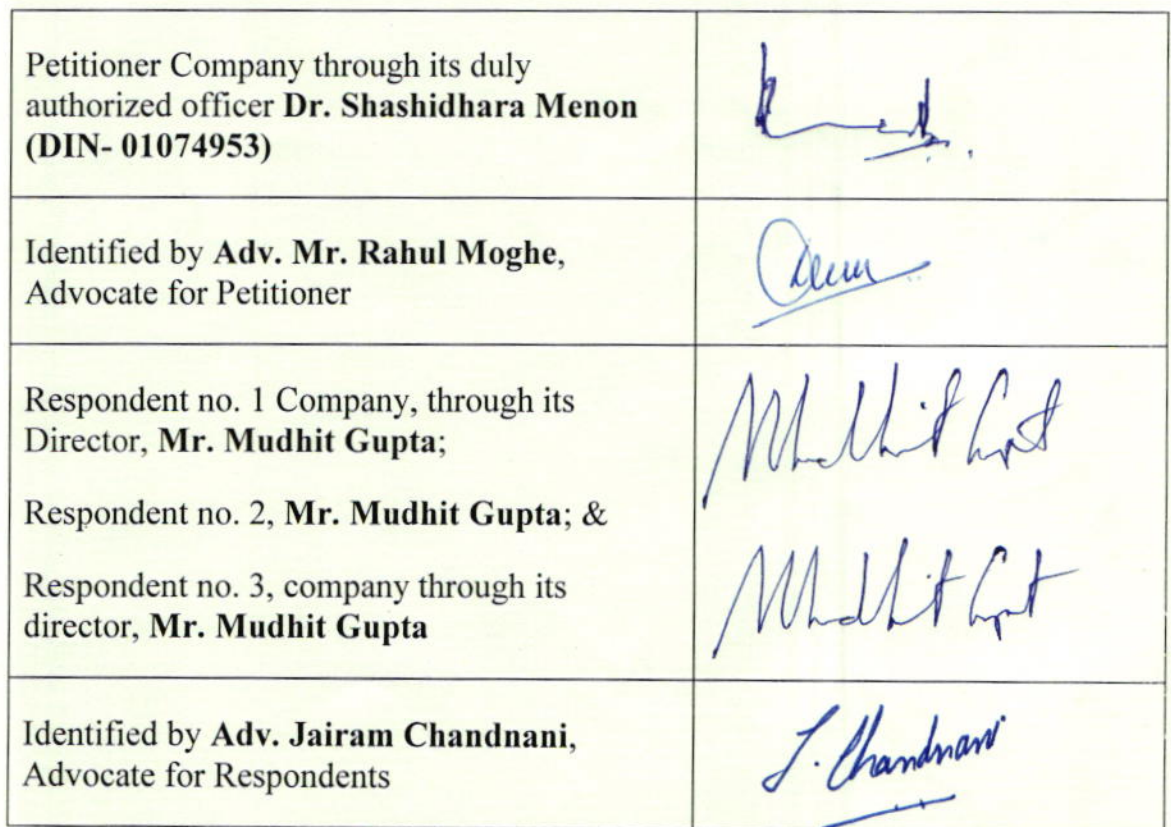 Petitioner Company through its duly
authorized officer Dr. Shashidhara Menon
(DIN- 01074953)
Identified by Adv. Mr. Rahul Moghe,
Advocate for Petitioner
Respondent no. 1 Company, through its
Director, Mr. Mudhit Gupta;
Mudhit Gupt
Respondent no. 2, Mr. Mudhit Gupta; &
Respondent no. 3, company through its
director, Mr. Mudhit Gupta
Mudhit Gupt
Identified by Adv. Jairam Chandnani,
Advocate for Respondents
J. Chandnani